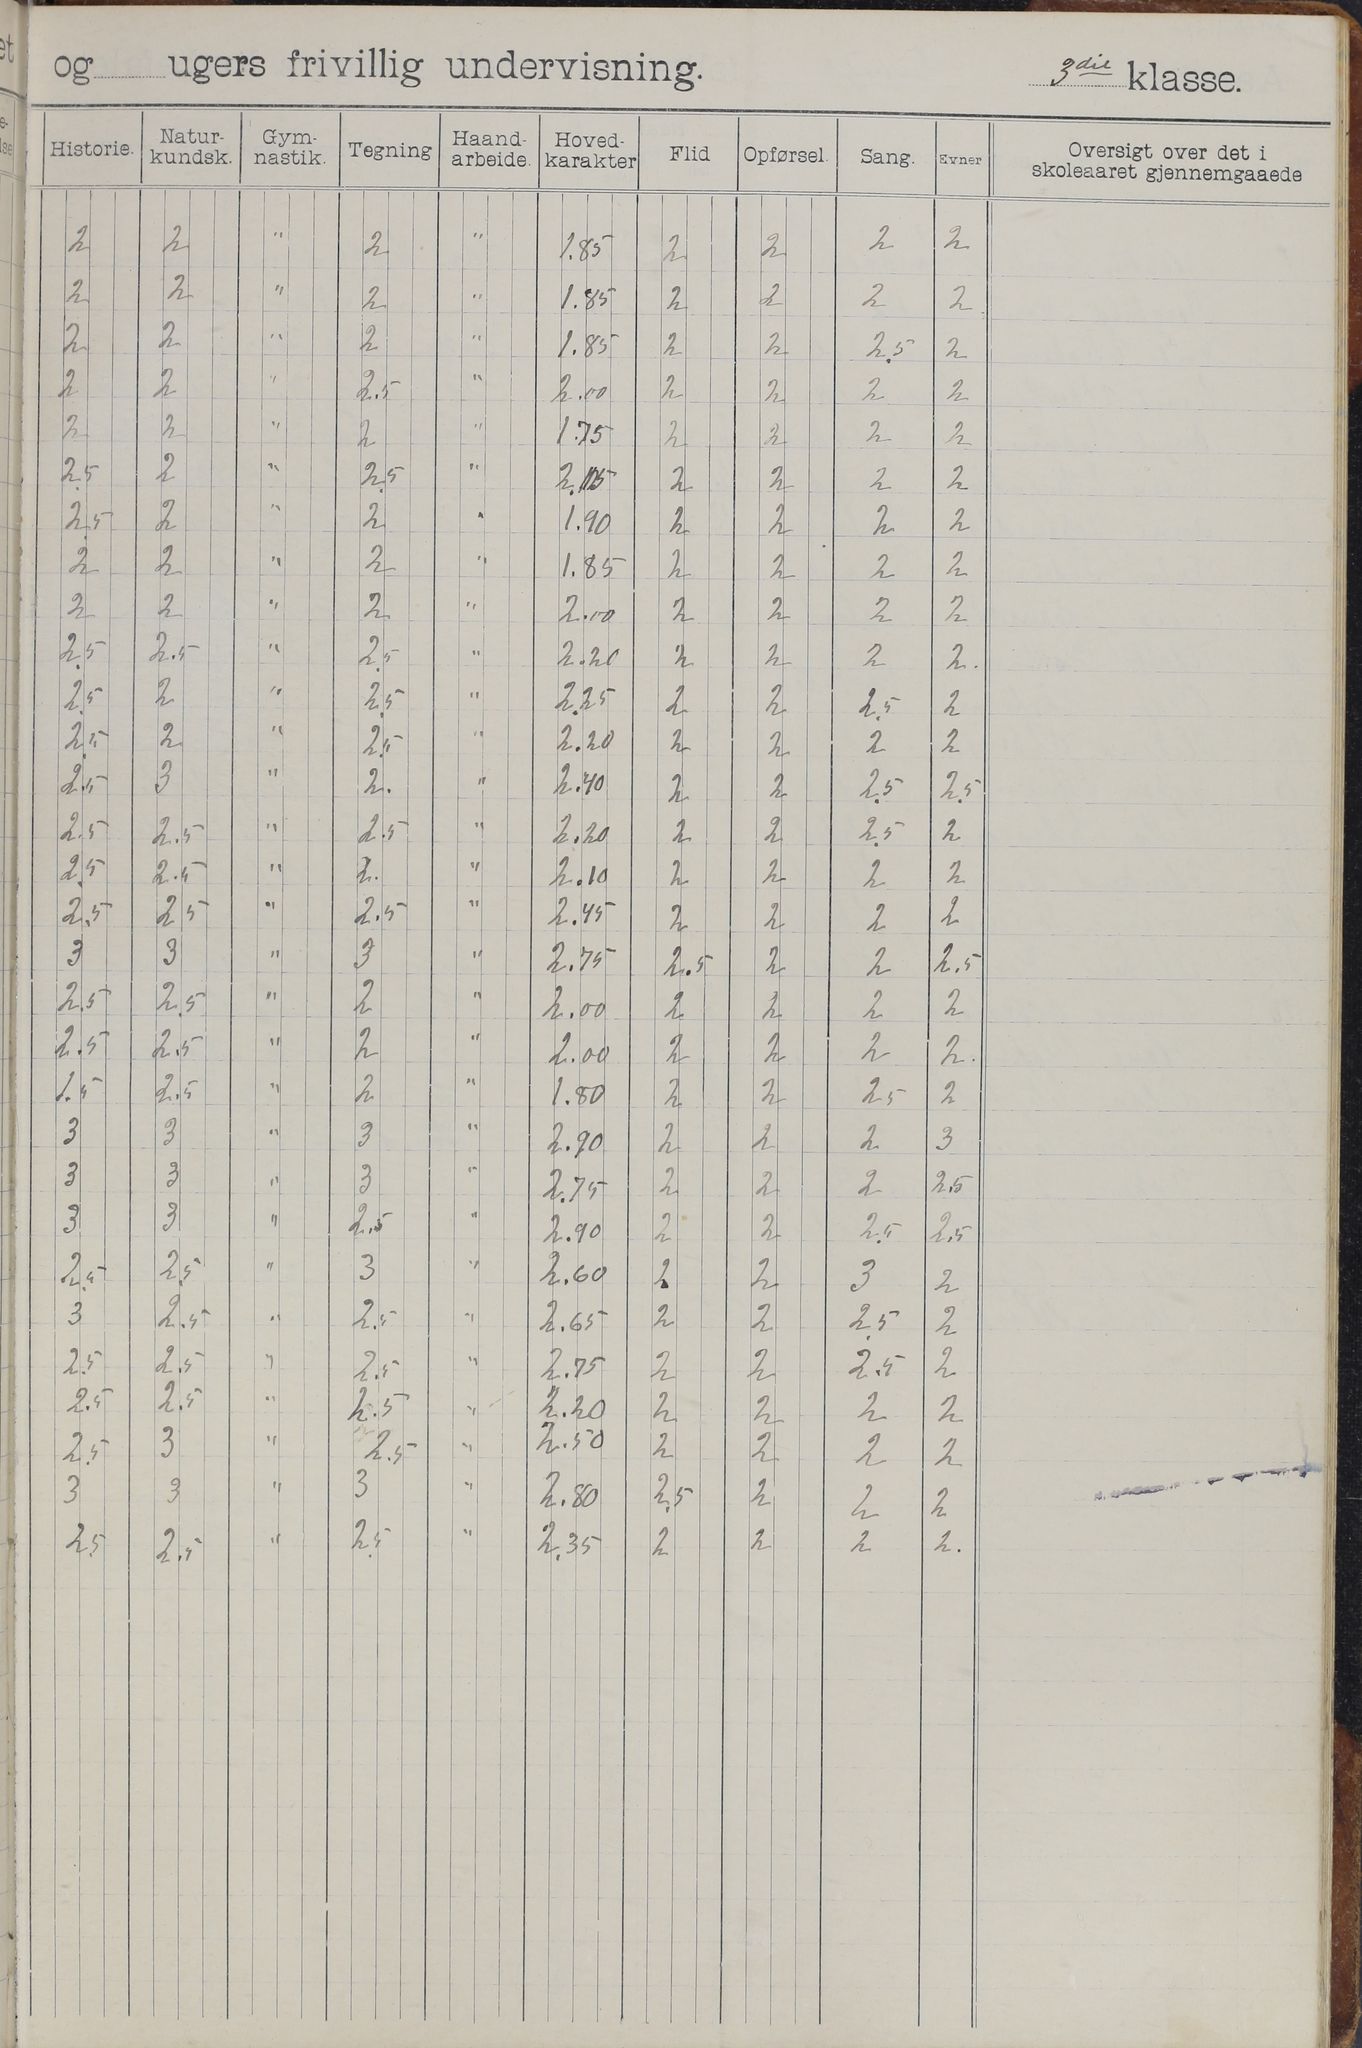 og ugers frivillig undervisning. 3die klasse.
Historie. Natur-kundsk. Gym-nastik. Tegning Haand-arbeide. Hoved-karakter Flid Opførsel. Sang. Evner Oversigt over det i skoleaaret gjennemgaaede
2 2 " 2 " 1.85 2 2 2 2
2 2 " 2 " 1.85 2 2 2 2
2 2 " 2 " 1.85 2 2 2.5 2
2 2 " 2.5 " 2.00 2 2 2 2
2 2 " 2 " 1.75 2 2 2 2
2.5 2 " 2.5 " 2 2 2 2
2.5 2 " 2 " 1.90 2 2 2 2
2 2 " 2 " 1.85 2 2 2 2
2 2 " 2 " 2.00 2 2 2 2
2.5 2.5 " 2.5 " 2.20 2 2 2 2.
2.5 2 " 2.5 " 2.25 2 2 2.5 2
2.5 2 " 2.5 " 2.20 2 2 2 2
2.5 3 " 2. " 2.40 2 2 2.5 2.5
2.5 2.5 " 2.5 " 2.20 2 2 2.5 2
2.5 2.5 " 2. " 2.10 2 2 2 2
2.5 2.5 " 2.5 " 2.45 2 2 2 2
3 3 " 3 " 2.75 2.5 2 2 2.5
2.5 2.5 " 2 " 2.00 2 2 2 2
2.5 2.5 " 2 " 2.00 2 2 2 2.
1.5 2.5 " 2 " 1.80 2 2 2.5 2
3 3 " 3 " 2.90 2 2 2 3
3 3 " 3 " 2.75 2 2 2 2.5
3 3 " 2.5 " 2.90 2 2 2.5 2.5
2.5 2.5 " 3 " 2.60 2 2 3 2
3 2.5 " 2.5 " 2.65 2 2 2.5 2
2.5 2.5 " 2.5 " 2.75 2 2 2.5 2
2.5 2.5 " 2.5 " 2.20 2 2 2 2
2.5 3 " 2.5 " 2.50 2 2 2 2
3 3 " 3 " 2.80 2.5 2 2 2
2.5 2.5 " 2.5 " 2.35 2 2 2 2.